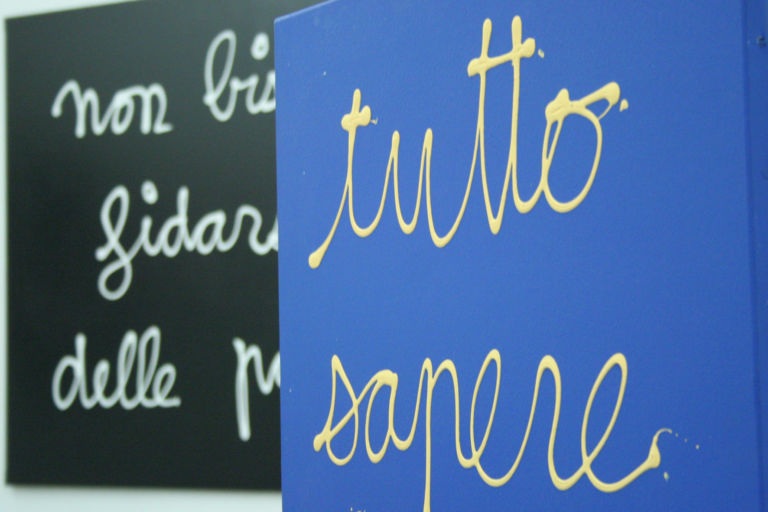 non bis
fidars
delle p
tutto
sapere